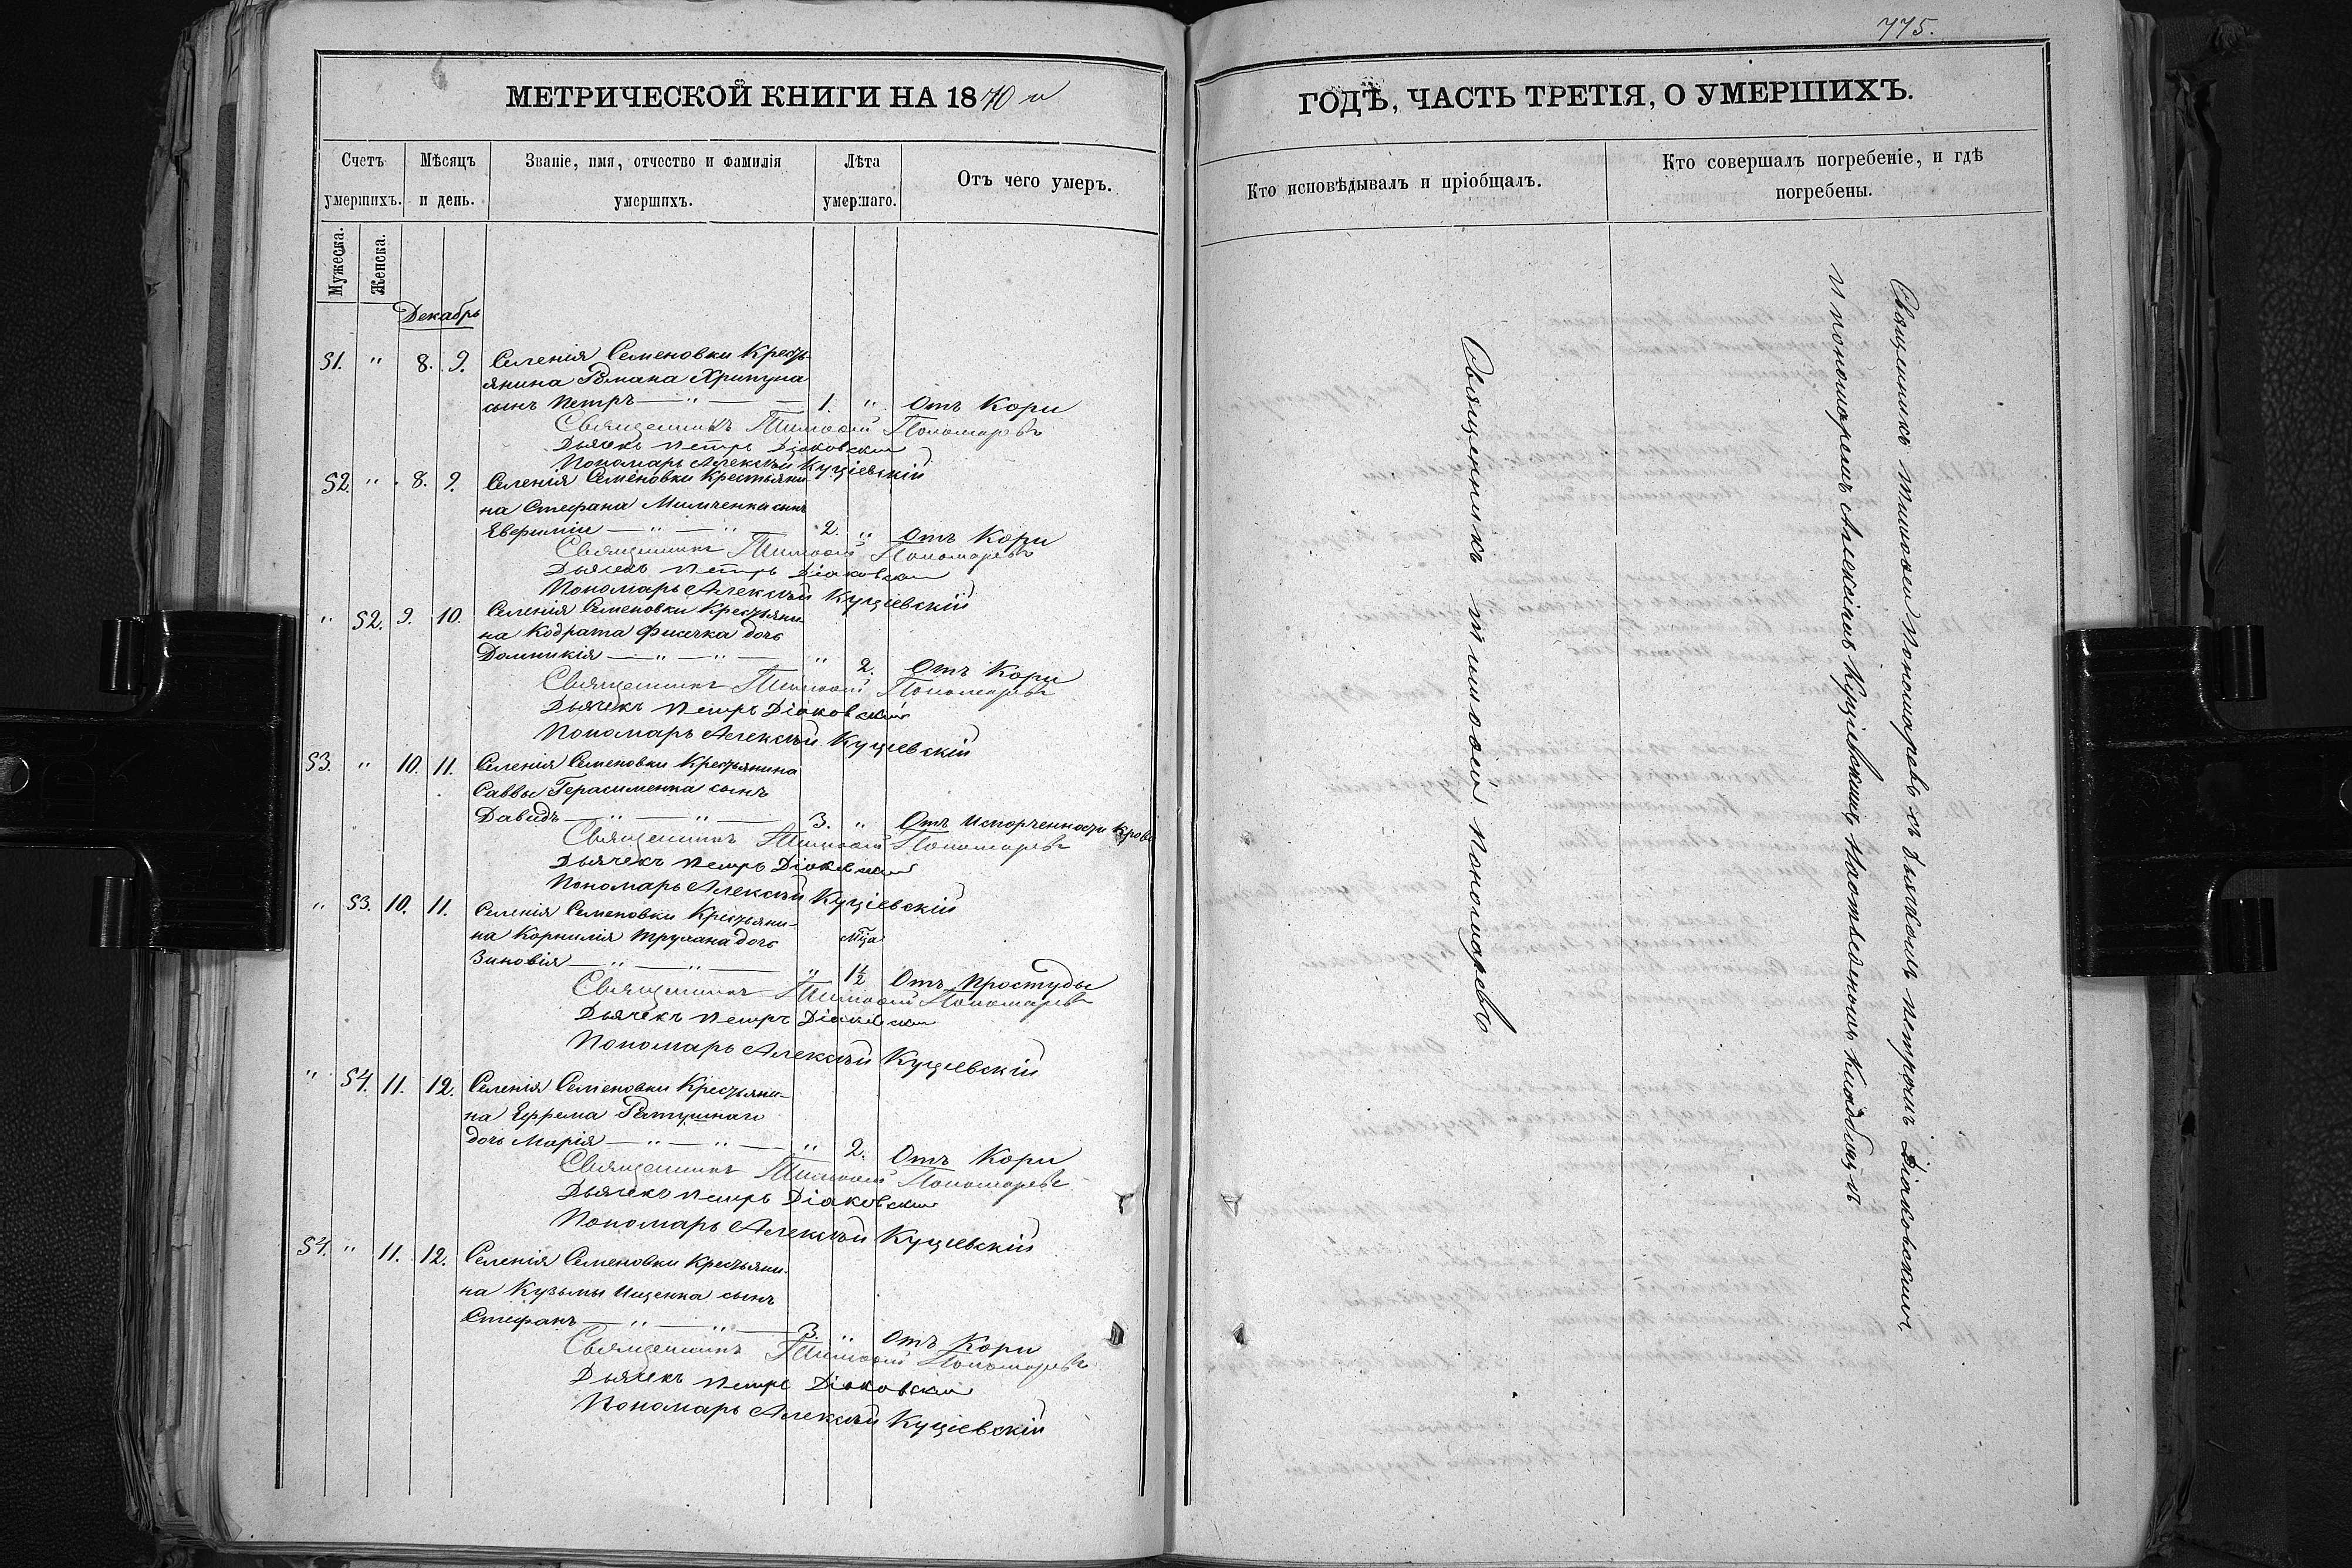 МЕТРИЧЕСКОЙ КНИГИ НА 1870 й
Счетъ умершихъ.
Мѣсяцъ и день.
Званіе, имя, отчество и фамилія умершихъ.
Лѣта умершаго.
Отъ чего умеръ.
Мужеска.
Женска.
Декабрь
51. " 8. 9. Селенія Семеновки Кресть-
янина Романа Хрипуна
сынъ Петръ — " — 1. " Отъ Кори
Священникъ Тимофей Пономаревъ
Дьячекъ Петръ Діаковскій
Пономарь Алексѣй Куціевскій
52. " 8. 9. Селенія Семеновки Крестьяни-
на Стефана Миличенка сынъ
Евфимій — " — " 2. " Отъ Кори
Священникъ Тимофей Пономаревъ
Дьячекъ Петръ Діаковскій
Пономарь Алексѣй Куціевскій
" 52. 9. 10. Селенія Семеновки Крестьяни-
на Кодрата Фисечка дочь
Домникія — " — " — " 2. Отъ Кори
Священникъ Тимофей Пономаревъ
Дьячекъ Петръ Діаковскій
Пономарь Алексѣй Куціевскій
53. " 10. 11. Селенія Семеновки Крестьянина
Саввы Герасименка сынъ
Давидъ — " — " — 3. " Отъ Испорченности Крови
Священникъ Тимофей Пономаревъ
Дьячекъ Петръ Діаковскій
Пономарь Алексѣй Куціевскій
" 53. 10. 11. Селенія Семеновки Крестьяни-
на Корнилія Трулана дочь мца
Зиновія — " — " — " 1½ Отъ Простуды
Священникъ Тимофей Пономаревъ
Дьячекъ Петръ Діаковскій
Пономарь Алексѣй Куціевскій
" 54. 11. 12. Селенія Семеновки Крестьяни-
на Ефрема Ратушнаго
дочь Марія — " — " — " 2. Отъ Кори
Священникъ Тимофей Пономаревъ
Дьячекъ Петръ Діаковскій
Пономарь Алексѣй Куціевскій
54. " 11. 12. Селенія Семеновки Крестьяни-
на Кузьмы Ищенка сынъ
Стефанъ — " — " — 3. " Отъ Кори
Священникъ Тимофей Пономаревъ
Дьячекъ Петръ Діаковскій
Пономарь Алексѣй Куціевскій
775.
ГОДЪ, ЧАСТЬ ТРЕТІЯ, О УМЕРШИХЪ.
Кто исповѣдывалъ и пріобщалъ.
Кто совершалъ погребеніе, и гдѣ
погребены.
Священникъ Тимофей Пономаревъ
Священникъ Тимофей Пономаревъ съ дьячкомъ Петромъ Діаковскимъ
и пономаремъ Алексѣемъ Куціевскимъ, на отведеномъ кладбищѣ